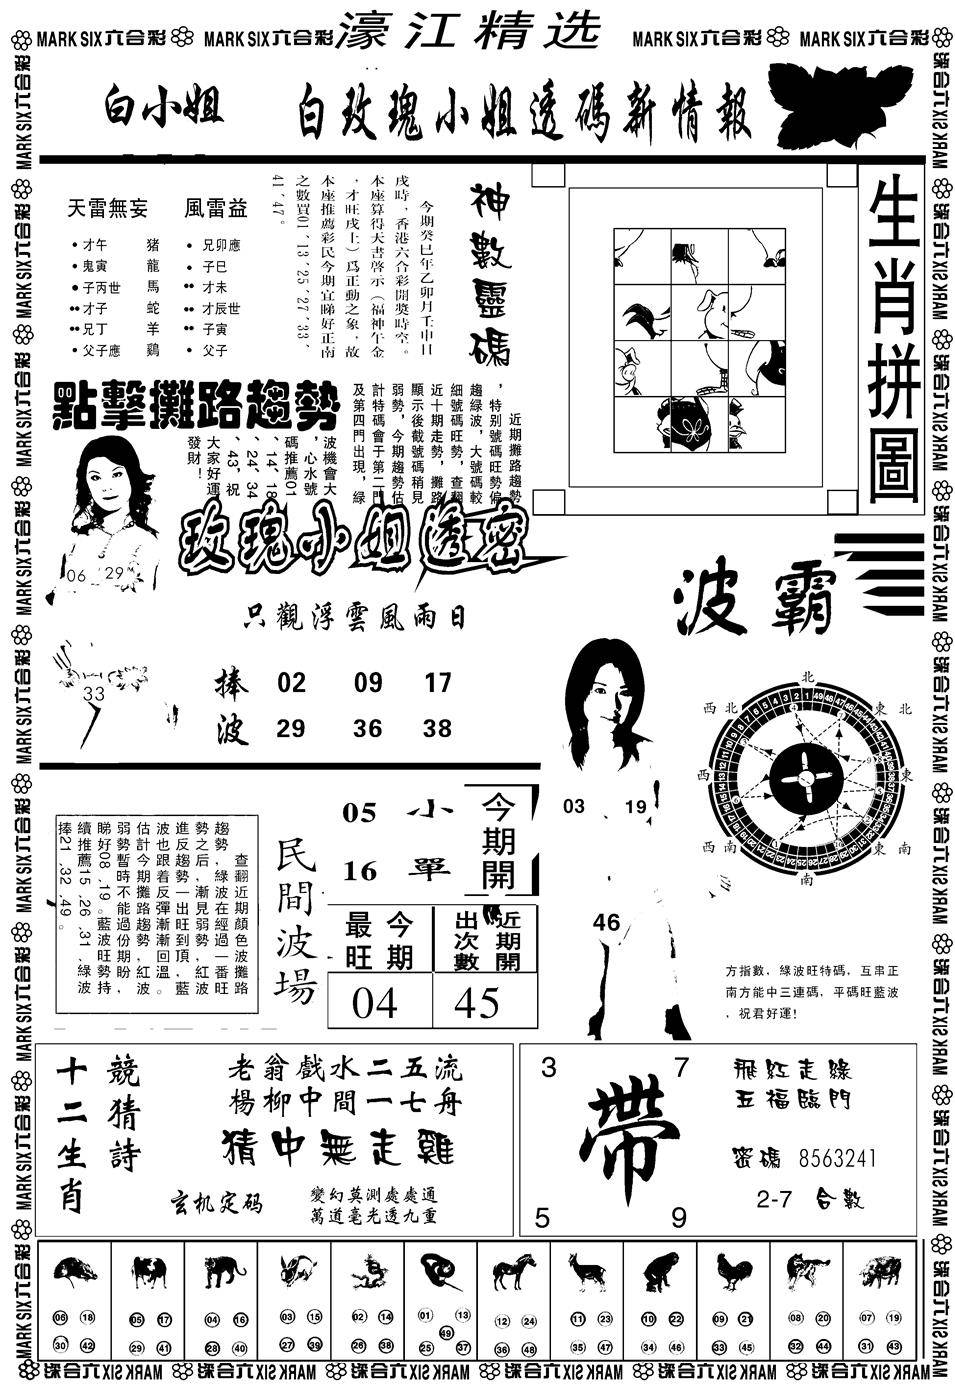 濠江精选
MARK SIX 六合彩 MARK SIX 六合彩
MARK SIX 六合彩 MARK SIX 六合彩
白小姐
白玫瑰小姐透碼新情報
天雷無妄
風雷益
•才午 豬
•鬼寅 龍
●子丙世 馬
••才子 蛇
••兄丁 羊
•父子應 鷄
•兄卯應
•子巳
••才未
••才辰世
••子寅
•父子
神數靈碼
今期癸巳年乙卯月壬申日
戌時，香港六合彩開獎時空。
本座算得天書啓示（福神午金
，才旺戌土）爲正動之象，故
本座推薦彩民今期宜睇好正南
之數買01、13、25、27、33、
41、47。
生肖拼圖
點擊攤路趨勢
近期攤路趨勢
，特別號碼旺勢偏
趨綠波，大號碼較
細號碼旺勢，查翻
近十期走勢，攤路
顯示後截號碼稍見
弱勢，今期趨勢估
計特碼會于第二門
及第四門出現，綠
波機會大
，心水號
碼推薦01
、14、18
、24、34
、43，祝
大家好運
發財！
06 29
33
玫瑰小姐透密
只觀浮雲風雨日
捧 02 09 17
波 29 36 38
波霸
03 19
46
北
東北
東
東南
南
西南
西
西北
方指數，綠波旺特碼，互串正
南方能中三連碼，平碼旺藍波
，祝君好運！
查翻近期顏色波攤路
趨勢，綠波在經過一番旺
勢之后，漸見弱勢，紅波
進反趨勢一出旺到頂，藍
波也跟着反彈漸漸回溫。
估計今期攤路趨勢紅波
弱勢暫時不能過份期盼，
睇好08、19。藍波旺勢持
續推薦15、26、31、綠波
捧21、32、49。
民間波場
05 小
16 單
今期開
今期最旺
近期開出次數
04
45
十二生肖
競猜詩
老翁戲水二五流
楊柳中間一七舟
猜中無走雞
玄机定码
變幻莫測處處通
萬道毫光透九重
3 7
帶
5 9
飛紅走綠
五福臨門
密碼 8563241
2-7 合數
06 18 05 17 04 16 03 15 02 14 01 13 12 24 11 23 10 22 09 21 08 20 07 19
49
30 42 29 41 28 40 27 39 26 38 25 37 36 48 35 47 34 46 33 45 32 44 31 43